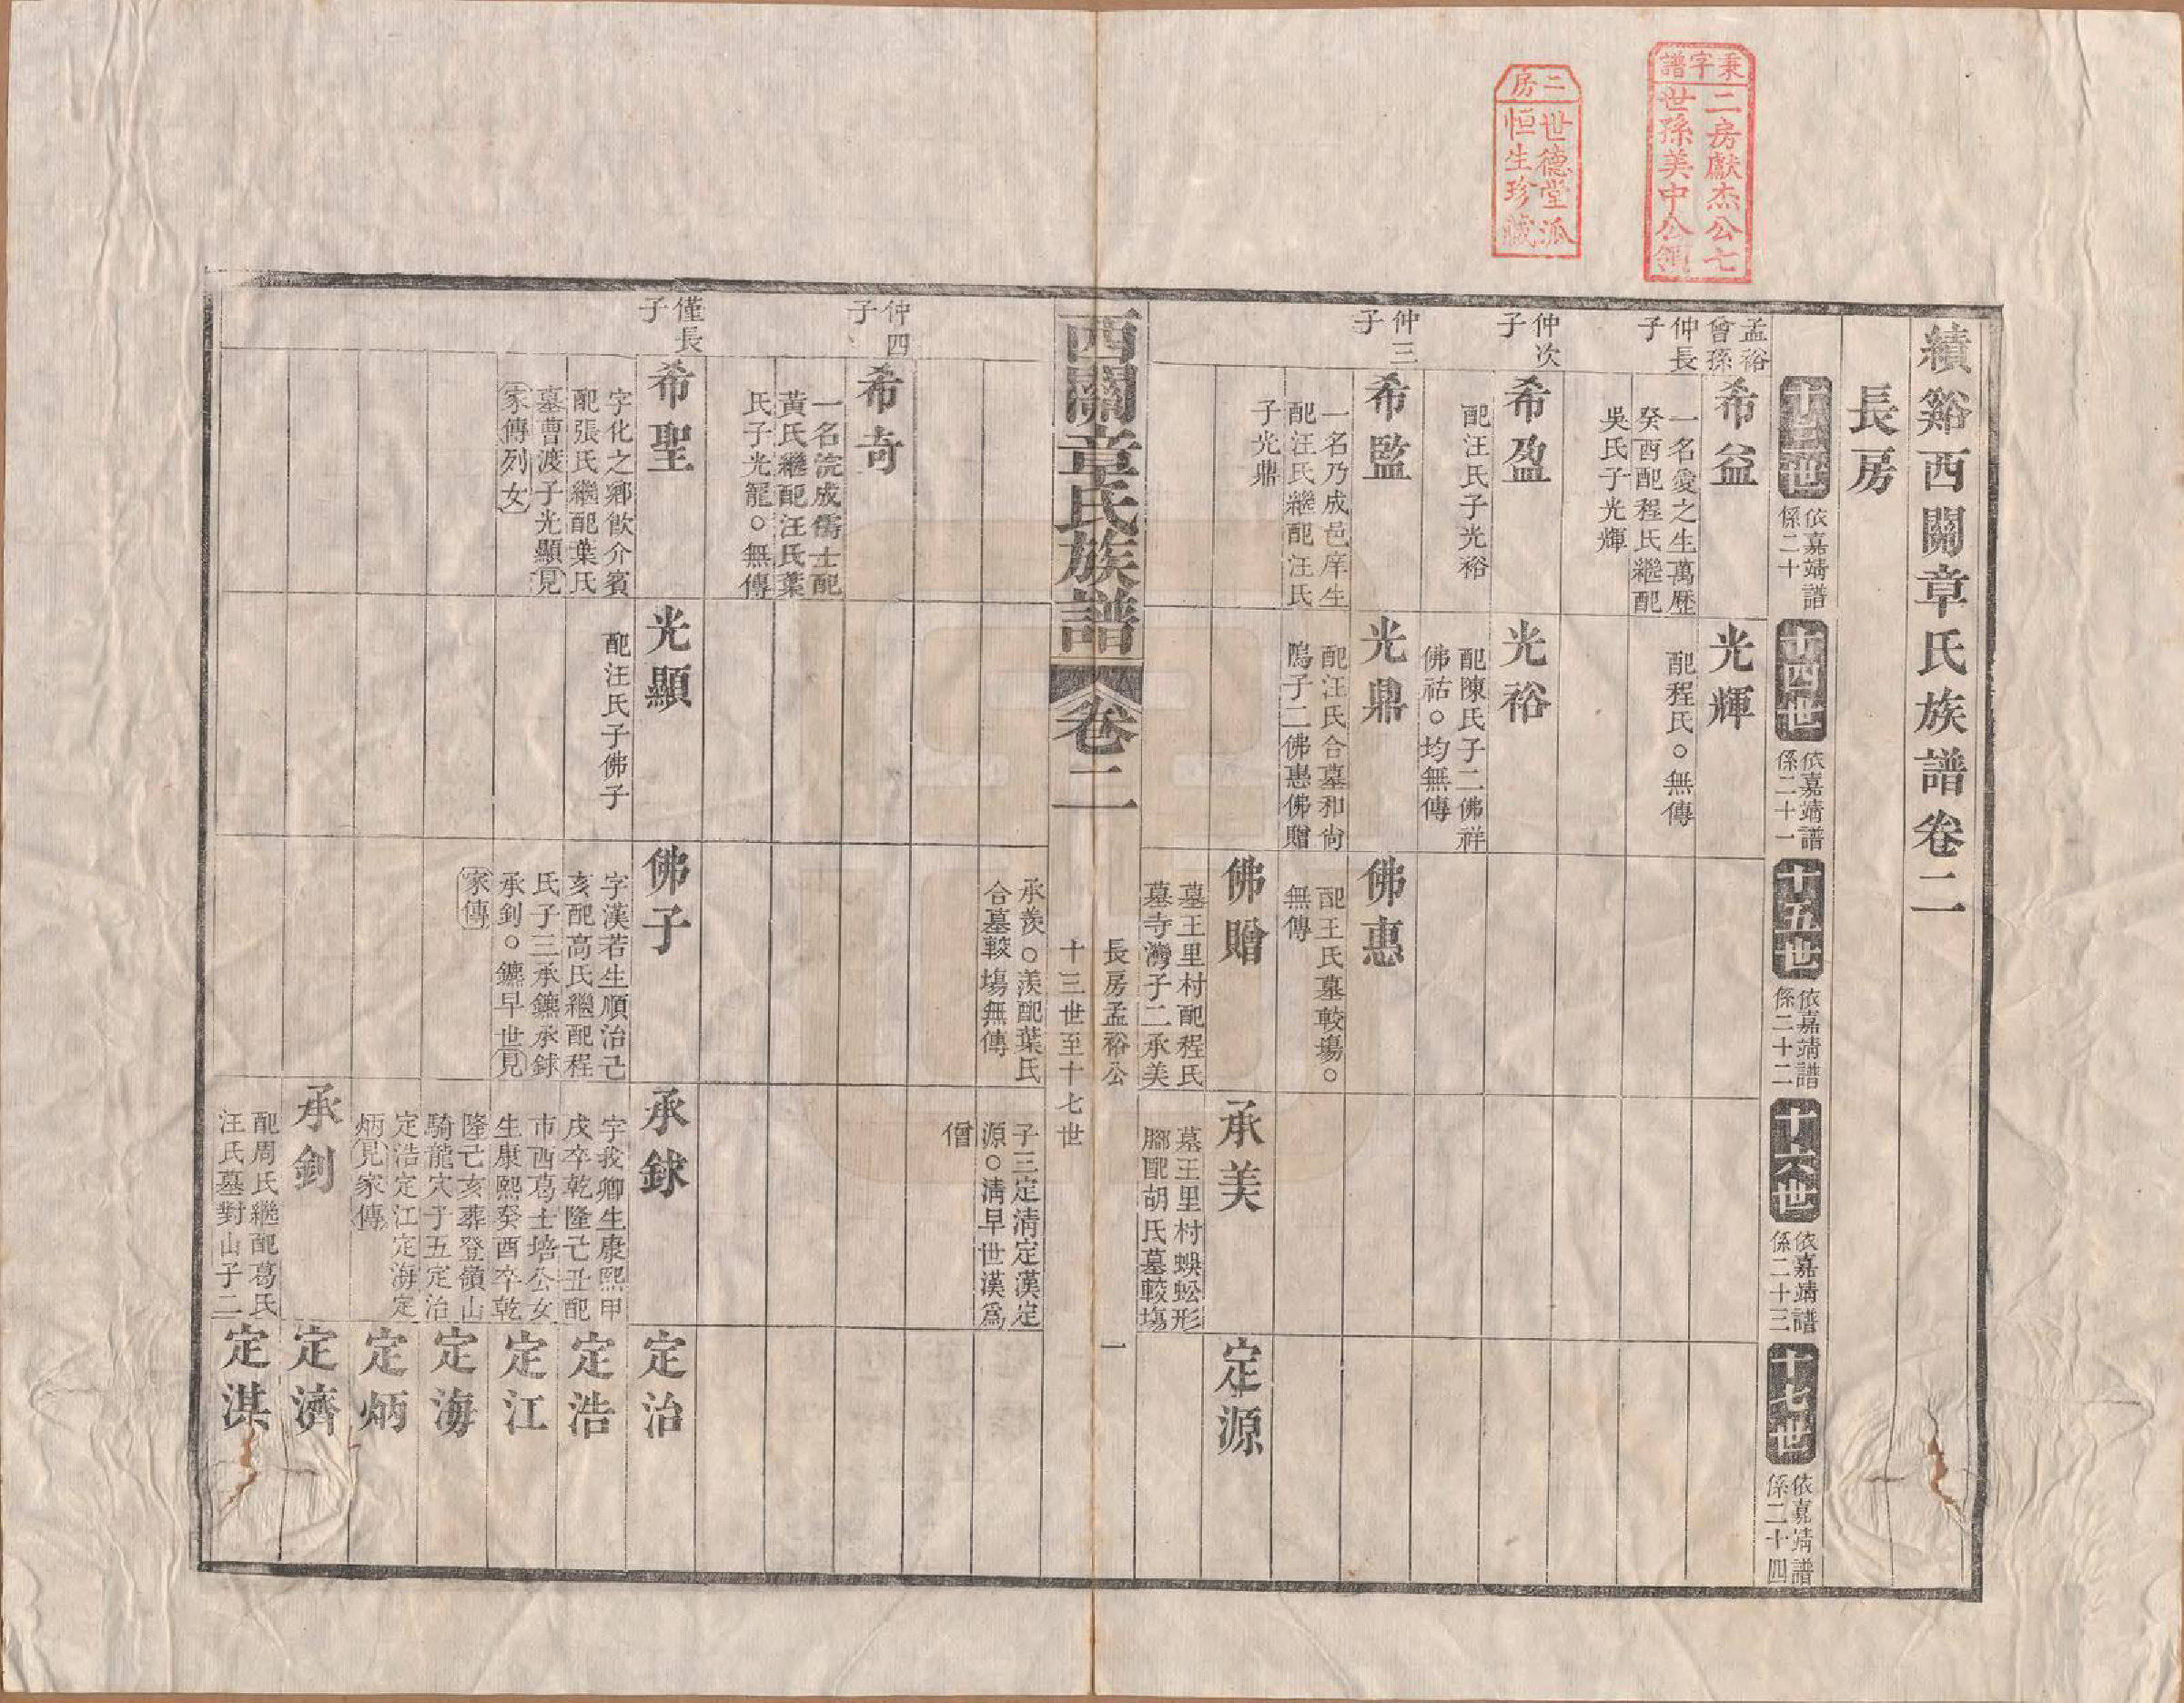 績谿西關章氏族譜卷二
長房
十三世
依嘉靖譜
係二十
十四世
依嘉靖譜
係二十一
十五世
依嘉靖譜
係二十二
十六世
依嘉靖譜
係二十三
十七世
依嘉靖譜
係二十四
孟裕
曾孫
仲長
子
希益
一名愛之生萬歷
癸酉配程氏繼配
吳氏子光輝
光輝
配程氏○無傳
仲次
子
希盈
配汪氏子光裕
光裕
配陳氏子二佛祥
佛祜○均無傳
仲三
子
希監
一名乃成邑庠生
配汪氏繼配汪氏
子光鼎
光鼎
配汪氏合墓和尚
塢子二佛惠佛贈
佛惠
配王氏墓較塲○
無傳
佛贈
墓王里村配程氏
墓寺灣子二承美
承羨○羨配葉氏
合墓較塲無傳
承美
墓王里村蜈蚣形
腳配胡氏墓較塲
子三定清定漢定
源○清早世漢爲
僧
定源
西關章氏族譜
卷二
長房孟裕公
十三世至十七世
一
仲四
子
希奇
一名浣成儒士配
黃氏繼配汪氏葉
氏子光寵○無傳
僅長
子
希聖
字化之鄉飲介賓
配張氏繼配葉氏
墓曹渡子光顯見
家傳列女
光顯
配汪氏子佛子
佛子
字漢若生順治己
亥配高氏繼配程
氏子三承鑣承銶
承釗○鑣早世見
家傳
承銶
字我卿生康熙甲
戌卒乾隆己丑配
市西葛士培公女
生康熙癸酉卒乾
隆己亥葬登嶺山
騎龍穴子五定治
定浩定江定海定
炳見家傳
定治
定浩
定江
定海
定炳
承釗
配周氏繼配葛氏
汪氏墓對山子二
定濟
定淇
秉字譜
二房獻杰公七
世孫美中公領
二房
世德堂派
恒生珍藏